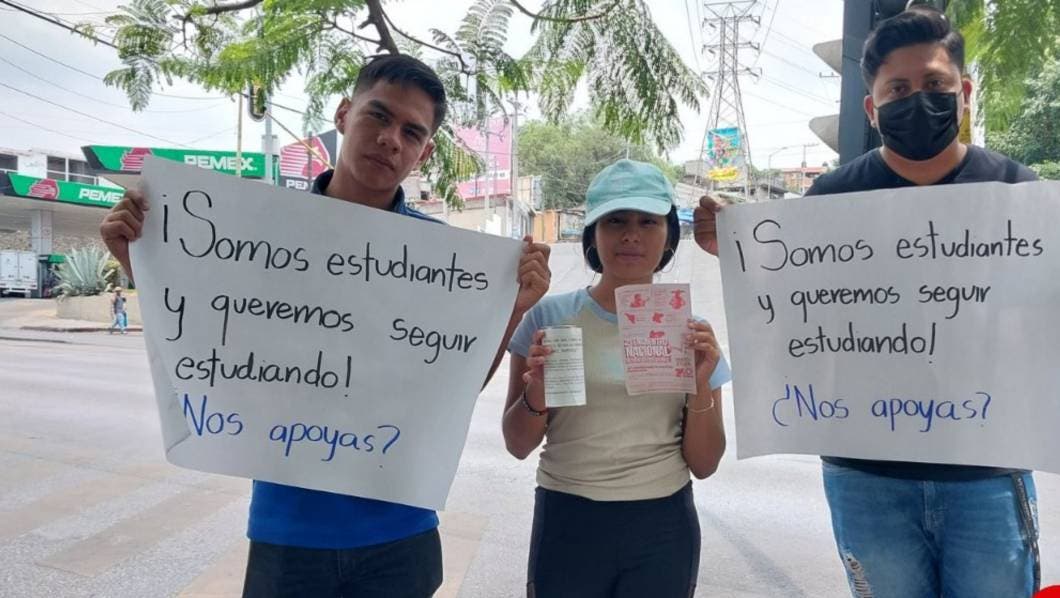 PEMEX
PEMEX
¡Somos estudiantes
y queremos seguir
estudiando!
Nos apoyas?
ENCUENTRO
NACIONAL
¡Somos estudiantes
y queremos seguir
estudiando!
¿Nos apoyas?